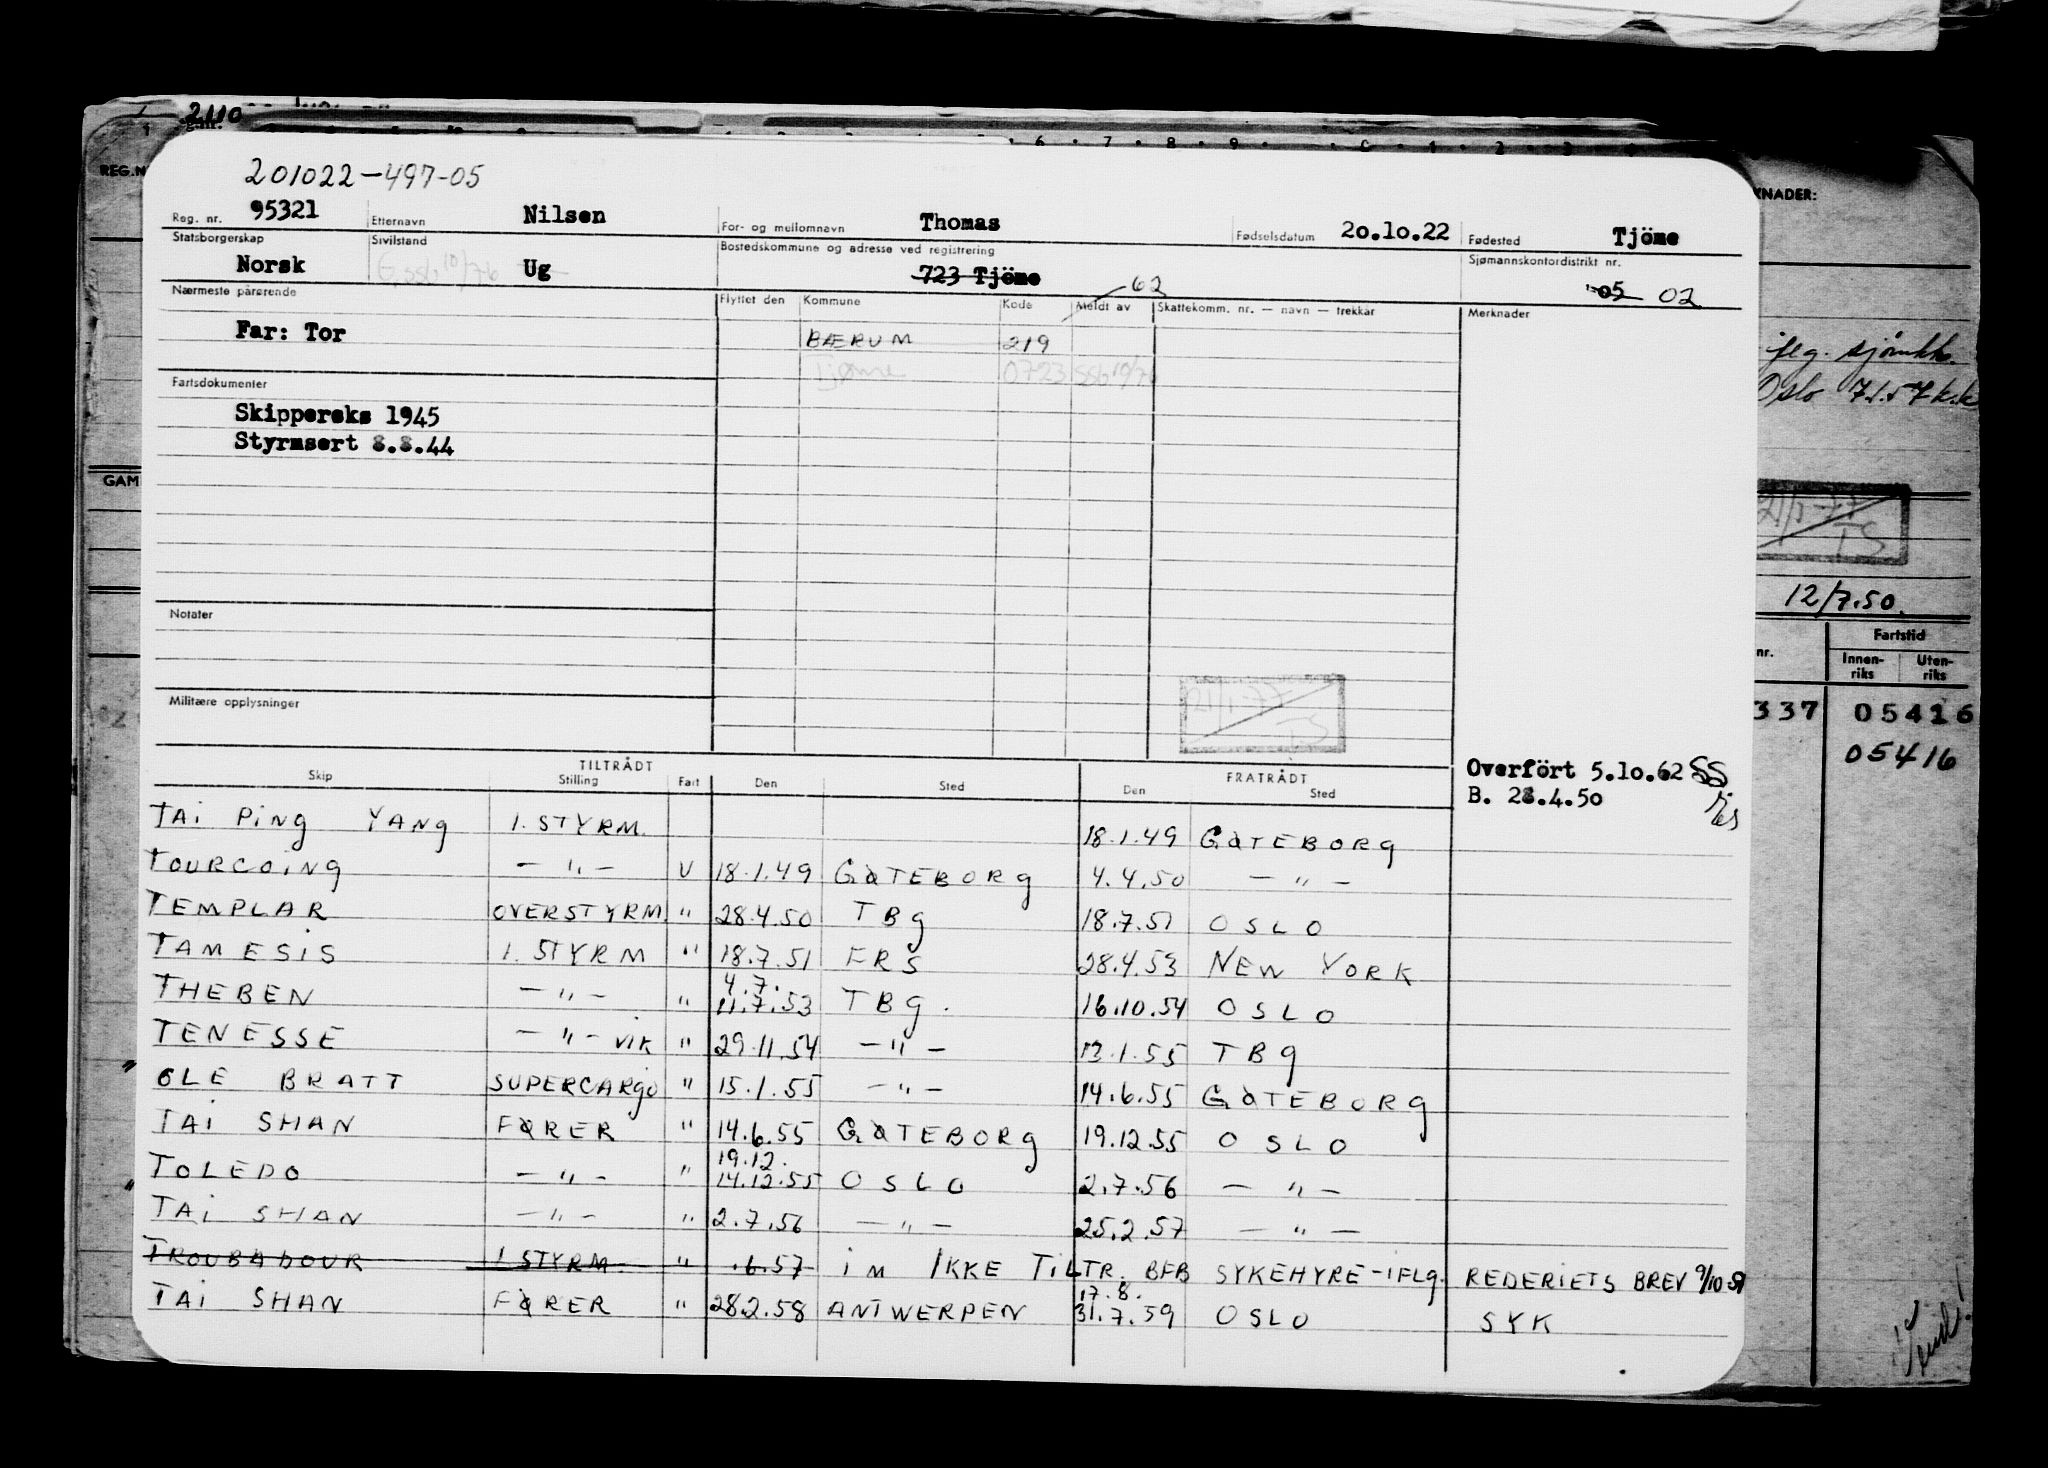 2110
REG.N
KNADER:
201022-497-05
Reg. nr. 95321 Etternavn Nilsen For- og mellomnavn Thomas Fødselsdatum 20.10.22 Fødested Tjöme
Statsborgerskap Norsk Sivilstand G. ssb 10/76 Ug Bostedskommune og adresse ved registrering 723 Tjöme Sjømannskontordistrikt nr. 05 02
Nærmeste pårørende Flyttet den Kommune Kode Meldt av 62 Skattekomm. nr. — navn — trekkår Merknader
Far: Tor BÆRUM 219
Tjøme 0723 SSb 10/76
Fartsdokumenter
Skippereks 1945
Styrmsert 8.8.44
Notater
Militære opplysninger
21/1-77 TS
Overfört 5.10.62 SS
B. 28.4.50
TILTRÅDT FRATRÅDT
Skip Stilling Fart Den Sted Den Sted
TAI PING YANG 1. STYRM. 18.1.49 GØTEBORG
TOURCOING — " — V 18.1.49 GØTEBORG 4.4.50 — " —
TEMPLAR OVERSTYRM. " 28.4.50 TBG 18.7.51 OSLO
TAMESIS 1. STYRM " 18.7.51 FRS 28.4.53 NEW YORK
THEBEN — " — " 4.7. 11.7.53 TBG. 16.10.54 OSLO
TENESSE — " — VIK " 29.11.54 — " — 13.1.55 TBG
" OLE BRATT SUPERCARGO " 15.1.55 — " — 14.6.55 GØTEBORG
TAI SHAN FØRER " 14.6.55 GØTEBORG 19.12.55 OSLO
" TOLEDO — " — " 19.12. 14.12.55 OSLO 2.7.56 — " —
TAI SHAN — " — " 2.7.56 — " — 25.2.57 — " —
TROUBADOUR 1 STYRM. " .6.57 IM IKKE TILTR. BFB SYKEHYRE-IFLG. REDERIETS BREV 9/10 57
TAI SHAN FØRER " 28.2.58 ANTWERPEN 17.8. 31.7.59 OSLO SYK
GAM
jfg. sjømkk.
Oslo 7.1.57 k.k
21/1-77
TS
12/7.50.
nr. Fartstid
Innen-riks Uten-riks
337 05416
05416
Vend!